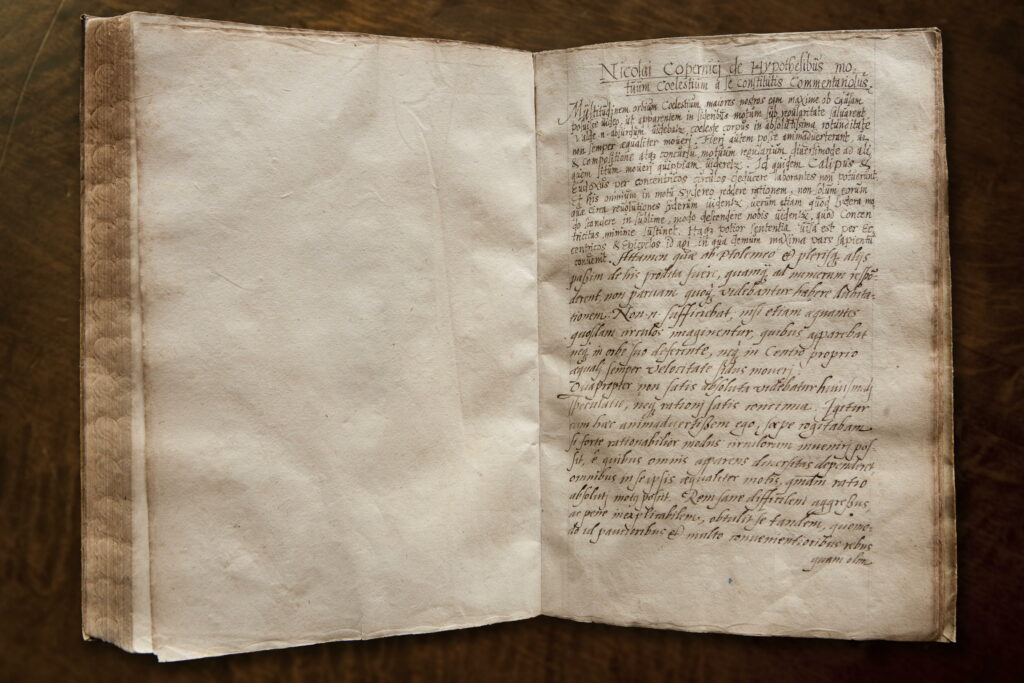 Nicolai Copernici de Hypothesibus mo-
tuum Coelestium a se constitutis Commentariolus.
Multitudinem orbium Coelestium, maiores nostros eam maxime ob causam
posuisse video, ut apparentem in sideribus motum sub regularitate salvarent
valde n. absurdum videbatur, coeleste corpus in absolutissima rotunditate
non semper aequaliter moveri. Fieri autem posse animadverterant, ut
& compositione atq concursu motuum regularium diversimode ad ali
quem situm moveri quippiam videretur. Id quidem Calipus &
Eudoxus per concentricos circulos deducere laborantes non potuerunt,
et his omnium in motu sydereo reddere rationem, non solum eorum
quae circa revolutiones syderum videntur, verum etiam quod sydera mo
do scandere in sublime, modo descendere nobis videntur, quod Concen
tricitas minime sustinet. Itaq potior sententia visa est per Ec
centricos & Epicyclos id agi, in qua demum maxima pars sapientu
convenit. Attamen quae ab Ptolemeo & plerisq alijs
passim de his prodita fuere, quamq ad numerum respo
derent, non parvam quoq videbantur habere dubita-
tionem. Non n. sufficiebat, nisi etiam aequantes
quosdam circulos imaginentur, quibus apparebat
neq in orbe suo deferente, neq in Centro proprio
aequali semper velocitate sidus moveri.
Quapropter non satis absoluta videbatur huiusmodi
speculatio, neq rationi satis concinna. Igitur
cum haec animadvertissem ego, saepe cogitabam
si forte rationabilior modus circulorum inveniri pos-
sit, e quibus omnis apparens diversitas dependeret
omnibus in seipsis aequaliter motis, quemadm ratio
absoluti motus poscit. Rem sane difficilem aggressus,
ac pene inexplicabilem, obtulit se tandem, quomo-
do id paucioribus & multo convenientioribus rebus
quam olim